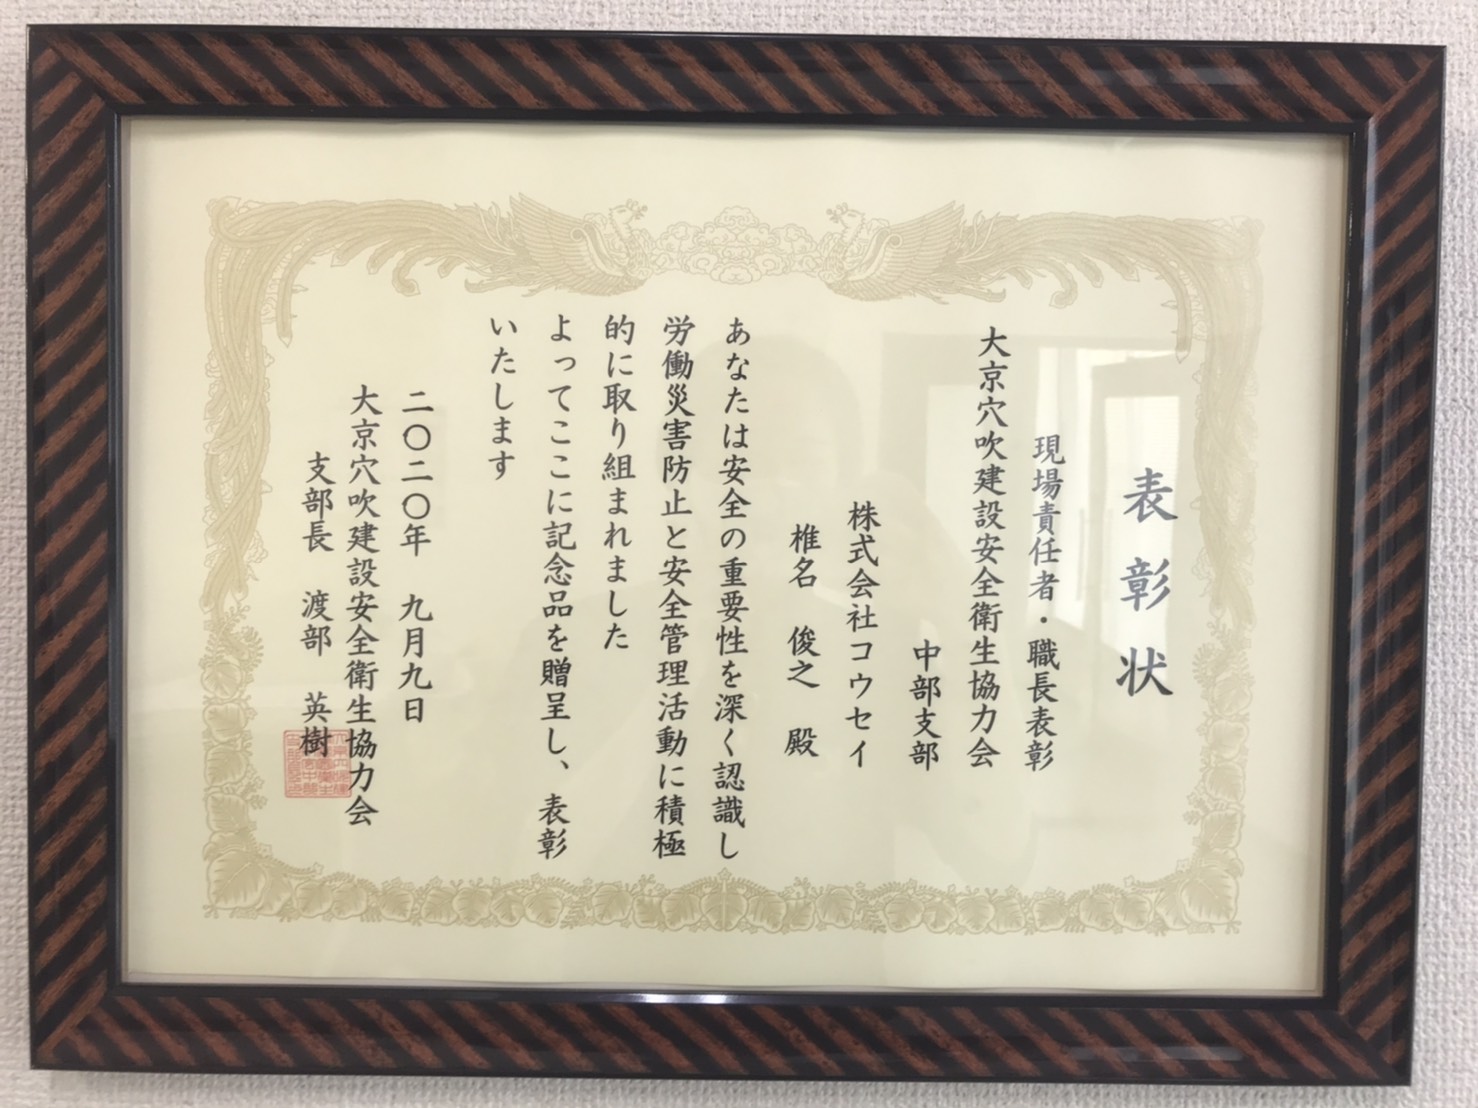 表彰状
現場責任者・職長表彰
大京穴吹建設安全衛生協力会
中部支部
株式会社コウセイ
椎名 俊之 殿
あなたは安全の重要性を深く認識し
労働災害防止と安全管理活動に積極
的に取り組まれました
よってここに記念品を贈呈し、表彰
いたします
二〇二〇年 九月九日
大京穴吹建設安全衛生協力会
支部長 渡部 英樹